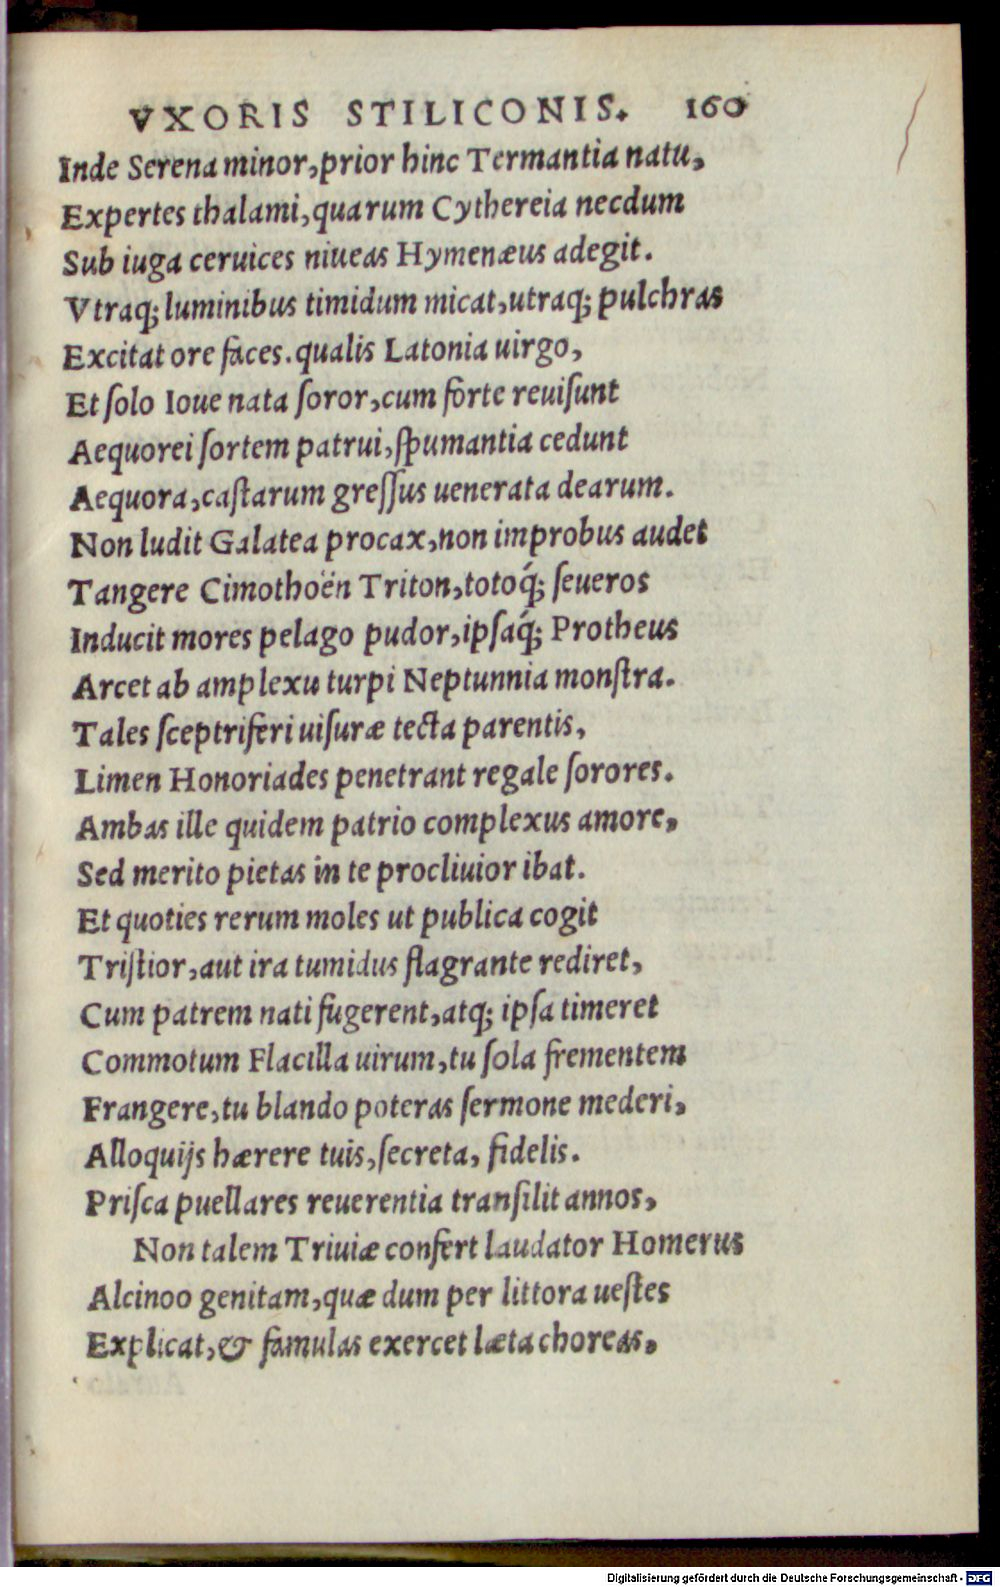 VXORIS STILICONIS. 160
Inde Serena minor, prior hinc Termantia natu,
Expertes thalami, quarum Cythereia necdum
Sub iuga ceruices niueas Hymenæus adegit.
Vtraq; luminibus timidum micat, utraq; pulchras
Excitat ore faces. qualis Latonia uirgo,
Et ſolo Ioue nata ſoror, cum forte reuiſunt
Aequorei ſortem patrui, ſpumantia cedunt
Aequora, caſtarum greſſus uenerata dearum.
Non ludit Galatea procax, non improbus audet
Tangere Cimothoën Triton, totoq́; ſeueros
Inducit mores pelago pudor, ipſaq́; Protheus
Arcet ab amplexu turpi Neptunnia monſtra.
Tales ſceptriferi uiſuræ tecta parentis,
Limen Honoriades penetrant regale ſorores.
Ambas ille quidem patrio complexus amore,
Sed merito pietas in te procliuior ibat.
Et quoties rerum moles ut publica cogit
Triſtior, aut ira tumidus flagrante rediret,
Cum patrem nati fugerent, atq; ipſa timeret
Commotum Flacilla uirum, tu ſola frementem
Frangere, tu blando poteras ſermone mederi,
Alloquijs hærere tuis, ſecreta, fidelis.
Priſca puellares reuerentia tranſilit annos,
Non talem Triuiæ confert laudator Homerus
Alcinoo genitam, quæ dum per littora ueſtes
Explicat, & famulas exercet læta choreas,
Digitalisierung gefördert durch die Deutsche Forschungsgemeinschaft - DFG